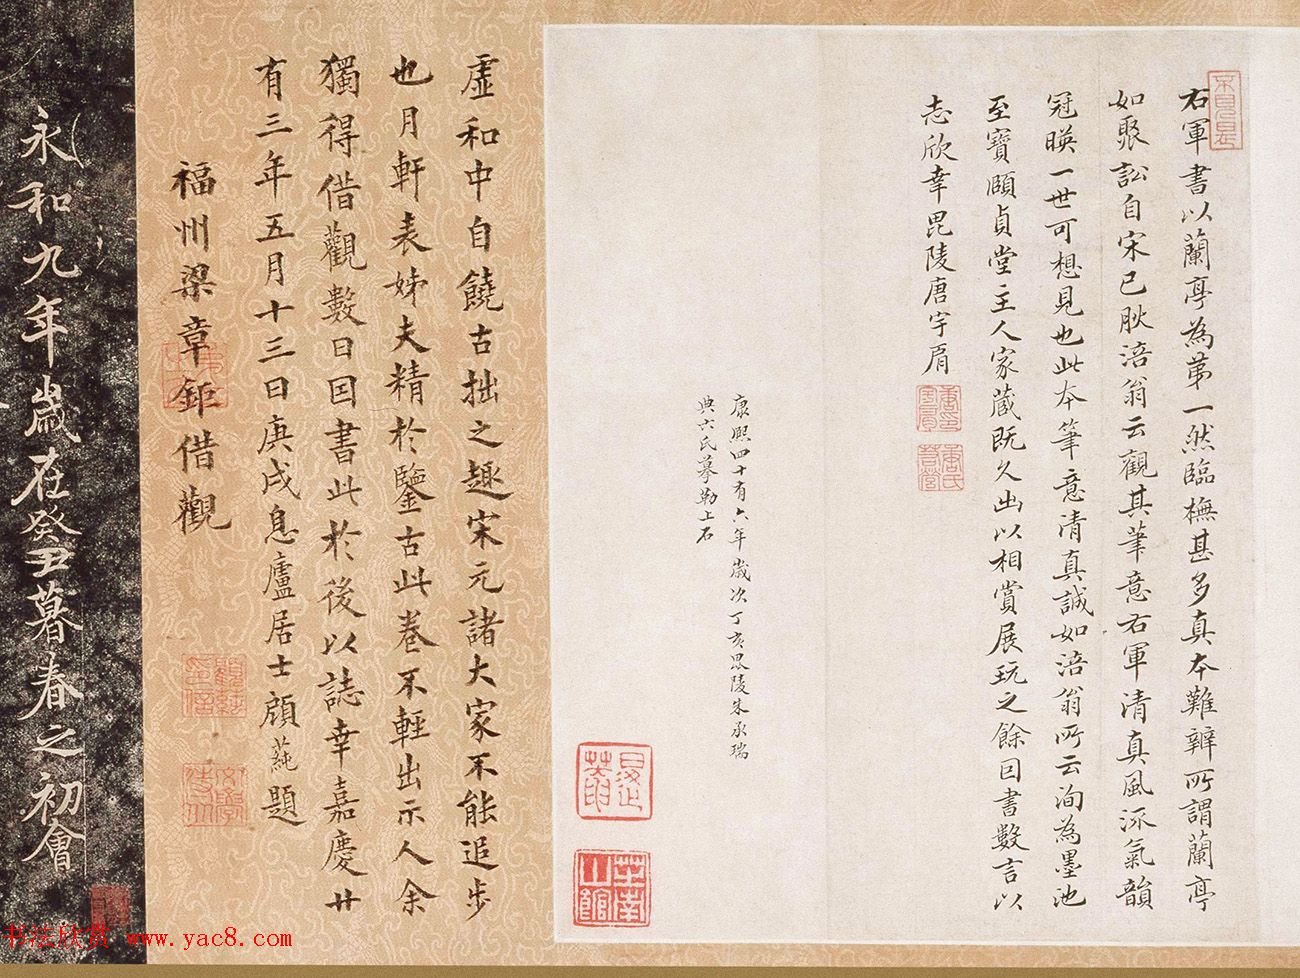 右軍書以蘭亭為苐一然臨橅甚多真本難辨所謂蘭亭
如聚訟自宋已肰涪翁云觀其筆意右軍清真風流氣韻
冠暎一世可想見也此本筆意清真誠如涪翁所云洵為墨池
至寶頤貞堂主人家蔵既久出以相賞展玩之餘因書數言以
志欣幸毘陵唐宇肩
康熙四十有六年歲次丁亥毘陵朱承瑞
典六氏摹勒上石
虛和中自饒古拙之趣宋元諸大家不能追步
也月軒表姊夫精於鑒古此卷不輕出示人余
獨得借觀數日因書此於後以誌幸嘉慶廿
有三年五月十三日庚戌息廬居士顧蒓題
福州梁章鉅借觀
永和九年歲在癸丑暮春之初會
书法欣赏 www.yac8.com